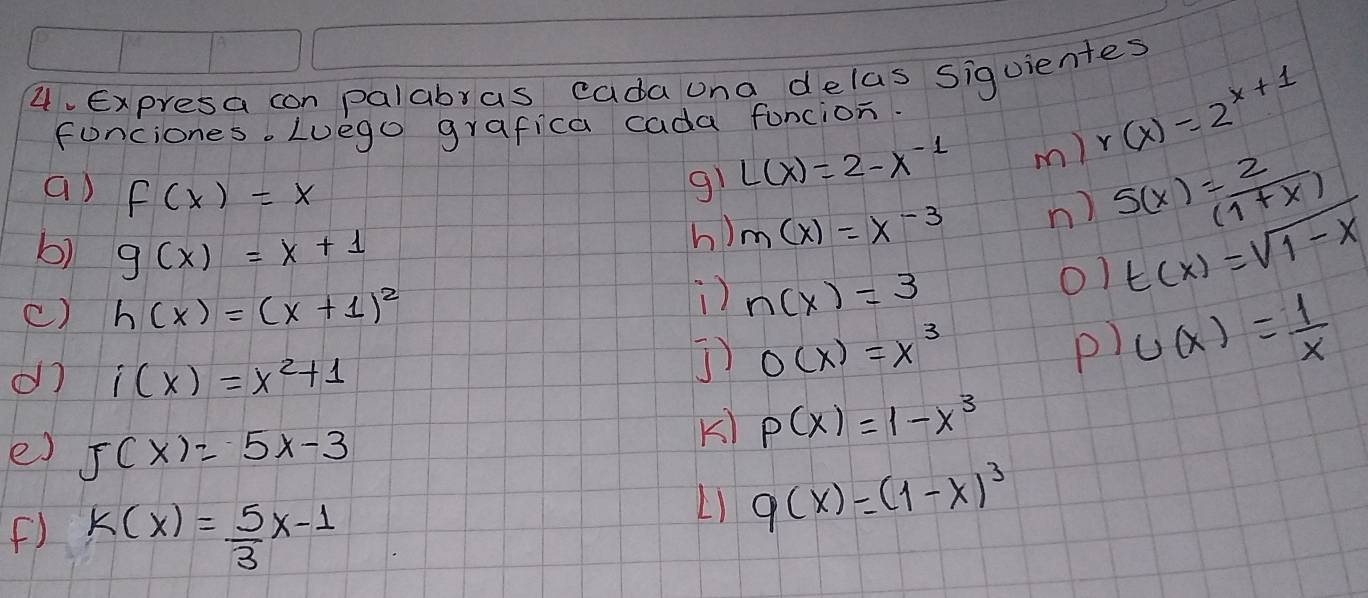 4. Expresa con palabras cada una delas siguientes
funciones. Luego grafica cada función.
a) f(x) = x
b) g(x) = x + 1
c) h(x) = (x + 1)²
d) i(x) = x² + 1
e) J(x) = 5x - 3
f) K(x) = 5/3 x - 1
g) L(x) = 2 - x⁻¹
h) m(x) = x⁻³
i) n(x) = 3
j) o(x) = x³
K) p(x) = 1 - x³
L) q(x) = (1 - x)³
m) r(x) = 2ˣ⁺¹
n) s(x) = 2/(1 + x)
o) t(x) = √1 - x
p) u(x) = 1/x